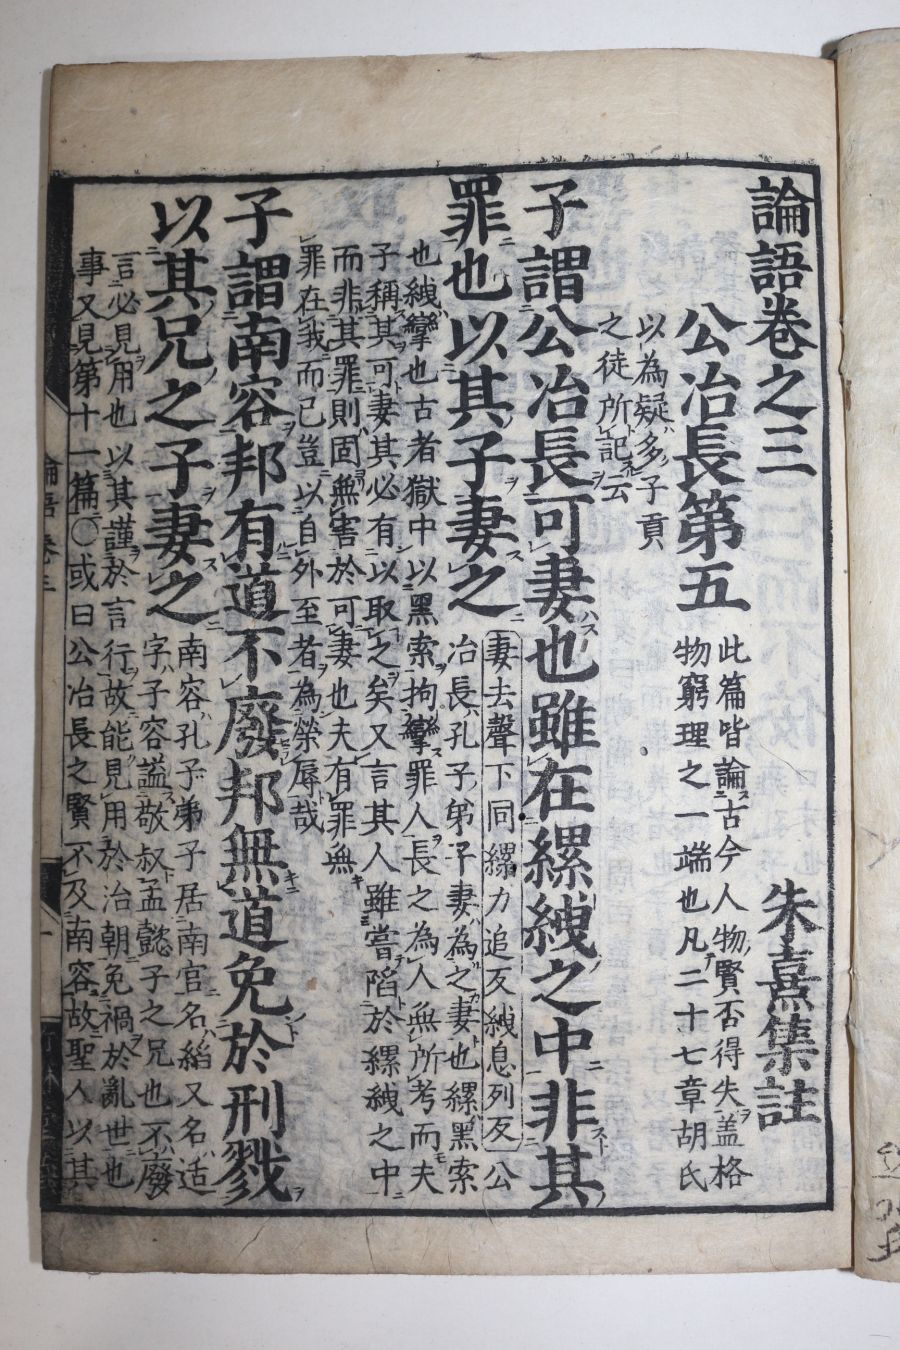 論語卷之三
朱熹集註
公冶長第五
此篇皆論古今人物賢否得失盖格
物窮理之一端也凡二十七章胡氏
以為疑多子貢
之徒所記云
子謂公冶長可妻也雖在縲絏之中非其
罪也以其子妻之
妻去聲下同縲力追反絏息列反公
冶長孔子弟子妻為之妻也縲黑索
也絏攣也古者獄中以黑索拘攣罪人長之為人無所考而夫
子稱其可妻其必有以取之矣又言其人雖嘗陷於縲絏之中
而非其罪則固無害於可妻也夫有罪無
罪在我而已豈以自外至者為榮辱哉
子謂南容邦有道不廢邦無道免於刑戮
以其兄之子妻之
南容孔子弟子居南宮名縚又名适
字子容謚敬叔孟懿子之兄也不廢
言必見用也以其謹於言行故能見用於治朝免禍於亂世也
事又見第十一篇〇或曰公冶長之賢不及南容故聖人以其
論語卷三